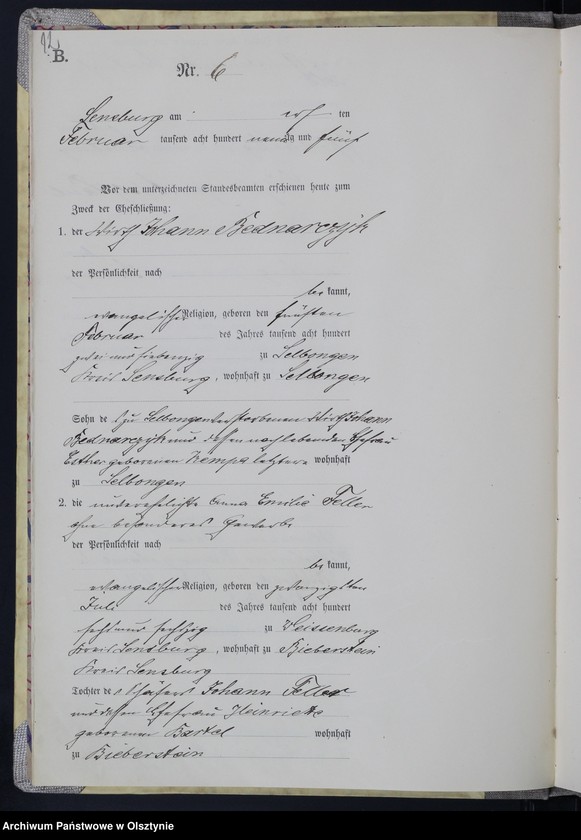 B.
Nr. 6
Sensburg am elf ten
Februar tausend acht hundert neunzig und fünf
Vor dem unterzeichneten Standesbeamten erschienen heute zum
Zweck der Eheschließung:
1. der Wirth Johann Bednarczyk
der Persönlichkeit nach
be kannt,
evangelischer Religion, geboren den fünften
Februar des Jahres tausend acht hundert
zwei und siebenzig zu Selbongen
Kreis Sensburg, wohnhaft zu Selbongen
Sohn des zu Selbongen verstorbenen Wirth Johann
Bednarczyk und dessen nachlebenden Ehefrau
Esther geborenen Kempa letztere wohnhaft
zu Selbongen
2. die unverehelichte Anna Emilie Feller
ohne besonderes Gewerbe
der Persönlichkeit nach
be kannt,
evangelischer Religion, geboren den zwanzigsten
Juli des Jahres tausend acht hundert
sechs und sechzig zu Weissenburg
Kreis Sensburg, wohnhaft zu Bieberstein
Kreis Sensburg
Tochter des Schäfers Johann Feller
und dessen Ehefrau Heinriette
geborenen Bartel wohnhaft
zu Bieberstein
Archiwum Państwowe w Olsztynie